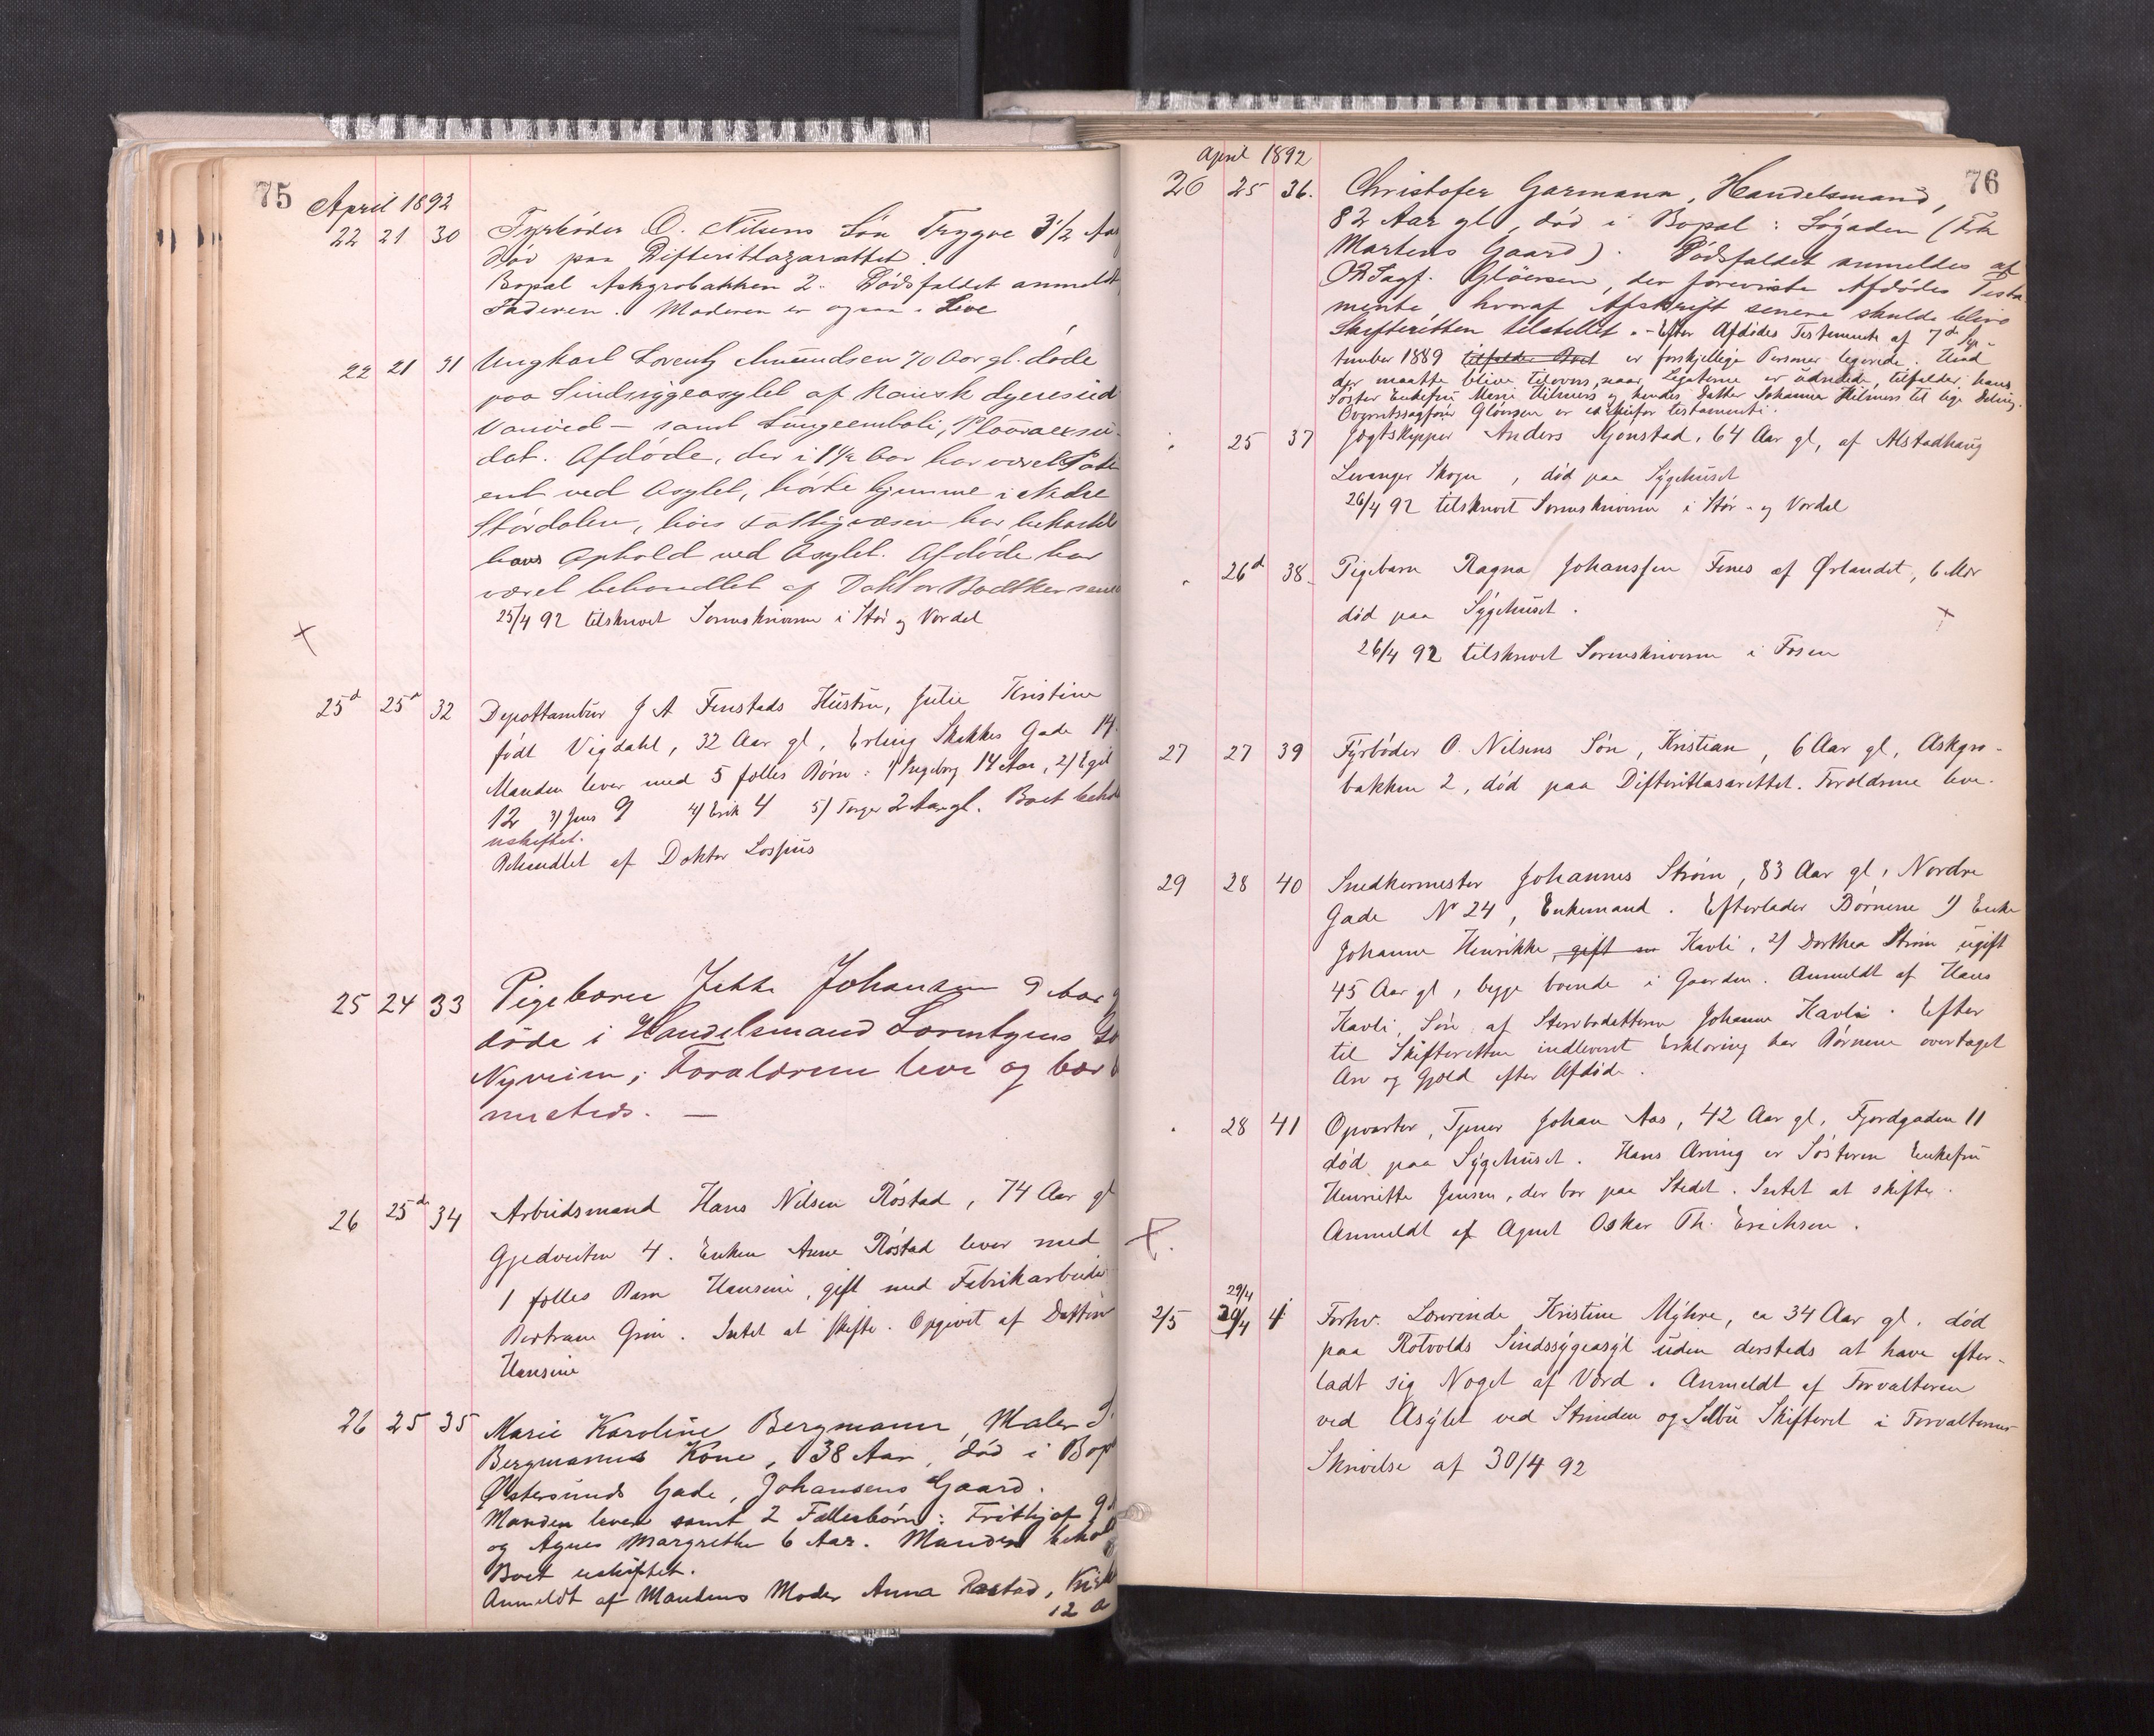 75
April 1892
22 21 30 Fyrbøder O. Nilsens Søn Trygve 3 1/2 Aar
død paa Difteritlazarettet.
Bopæl Askgrobakken 2. Dødsfaldet anmeldt
Faderen. Moderen er ogsaa i Live
22 21 31 Ungkarl Lorentz Amundsen 70 Aar gl. døde
paa Sindsygeasylet af
samt Lungeemboli,
dat. Afdøde, der i 1 1/2 Aar har været Pati
ent ved Asylet, hørte hjemme i Nedre
Størdalen, hvis Fattigvæsen har bekostet
hans Ophold ved Asylet. Afdøde har
været behandlet af Doktor
25/4 92 tilskrevet Sorenskriveren i Stør og Værdal
25d 25d 32 Depottambur J A Finstads Hustru, Julie Kristine
født Vigdahl, 32 Aar gl, Erling Skakkes Gade 14.
Manden lever med 5 fælles Børn: 1) Ingeborg 14 Aar, 2) Egil
12 3) Jens 9 4) Erik 4 5) Torger 2 Aar gl. Boet behol
uskiftet.
Behandlet af Doktor
25 24 33 Pigebarn Johansen 9 Aar g
døde i Handelsmand Lorentzens
Nyveien; Forældrene leve og bor
26 25d 34 Arbeidsmand Hans Nilsen Røstad, 74 Aar gl
Gjedveiten 4. Enken Anne Røstad lever med
1 fælles Barn Hansine, gift med Fabrikarbeider
Bertram. Intet at skifte. Opgivet af Datteren
Hansine
26 25 35 Marie Karoline Bergmann, Maler
Bergmanns Kone, 38 Aar, død i Bop
Østersunds Gade, Johansens Gaard.
Manden lever samt 2 Fællesbørn: Frithjof 9
og Agnes Margrethe 6 Aar. Manden behol
Boet uskiftet.
Anmeldt af Mandens Moder Anna Røstad,
12 a
76
April 1892
26 25 36. Christofer Garmann, Handelsmand,
82 Aar gl, død i Bopæl: Søgaden (Frk
Martens Gaard). Dødsfaldet anmeldes af
ORSagf. Gløersen, der foreviste Afdødes Testa
mente, hvoraf Afskrift senere skulde blive
Skifteretten tilstillet. - Efter Afdødes Testamente af 7de Sep-
tember 1889 tilfalder Boet er forskjellige Personer legerede. Hvad
der maatte blive tilovers, naar Legaterne er udredede, tilfalder hans
Søster Enkefru Marie Hilmers og hendes Datter Johanna Hilmers til lige Deling.
Overretssagfører Gløersen er executor testamenti.
25 37 Jægtskipper Anders Kjønstad, 64 Aar gl, af Alstadhaug
Levanger Skogn, død paa Sygehuset
26/4 92 tilskrevet Sorenskriveren i Stør- og Værdal
26d 38 Pigebarn Ragna Johanssen Fines af Ørlandet, 6 Mdr
død paa Sygehuset.
26/4 92 tilskrevet Sorenskriveren i Fosen
27 27 39 Fyrbøder O. Nilsens Søn, Kristian, 6 Aar gl, Askgro-
bakken 2, død paa Difteritlasarettet. Forældrene leve.
29 28 40 Snedkermester Johannes Strøm, 83 Aar gl, Nordre
Gade Nr 24, Enkemand. Efterlader Børnene 1) Enke
Johanne Henrikke gift m Kavli, 2) Dorthea Strøm ugift
45 Aar gl, begge boende i Gaarden. Anmeldt af Hans
Kavli, Søn af Stervbodatteren Johanne Kavli. Efter
til Skifteretten indleveret Erklæring har Børnene overtaget
Arv og Gjæld efter Afdøde.
28 41 Opvarter, Tjener Johan Aas, 42 Aar gl, Fjordgaden 11
død paa Sygehuset. Hans Arving er Søsteren Enkefru
Henriette Jensen, der bor paa Stedet. Intet at skifte.
Anmeldt af Agent Oskar Th. Erichsen.
29/4
2/5 29/4 Forhv. Lærerinde Kristine Myhre, ca 34 Aar gl. død
paa Rotvolds Sindssygeasyl uden dersteds at have efter-
ladt sig Noget af Værd. Anmeldt af Forvalteren
ved Asylet ved Strinden og Selbu Skifteret i Forvalterens
Skrivelse af 30/4 92